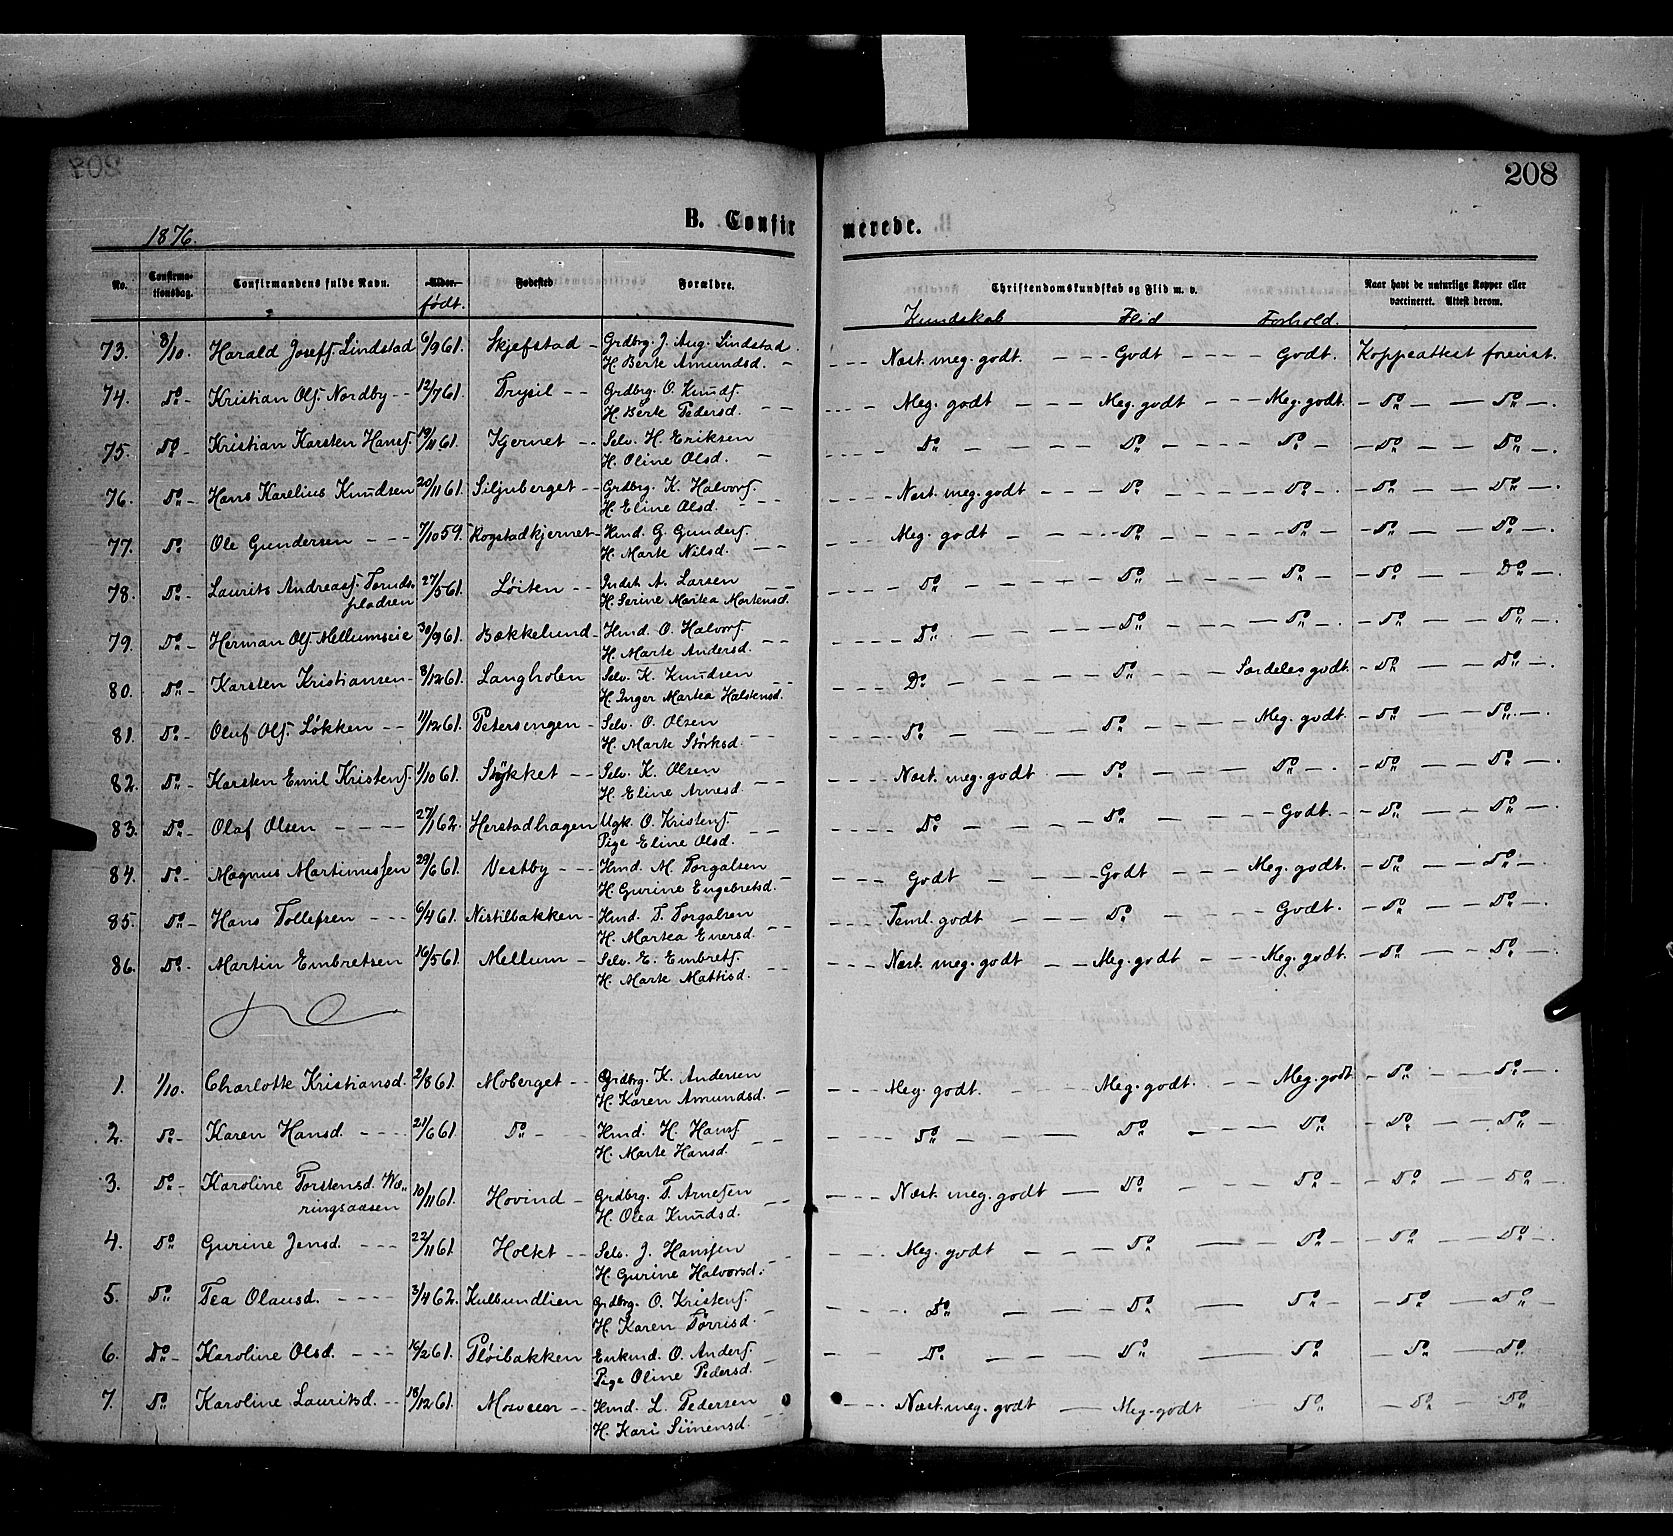 208
B. Confirmerede.
1876.
No. Confirmationsdag. Confirmandens fulde Navn. Alder. født. Fødested Forældre. Christendomskundskab og Flid m. v. Naar havt de naturlige Kopper eller vaccineret. Attest derom.
Kundskab Flid Forhold.
73. 8/10. Harald Josefs. Lindstad 6/9 61. Skjefstad - Grdbrg. J. Aug. Lindstad. Næst. meg. godt. Godt Godt. Koppeattest forevist.
H. Berte Amundsd.
74. Do Kristian Ols. Nordby 12/7 61. Trysil Grdbrg. O. Knuds. Meg. godt Meg. godt Meg. godt. Do Do
H. Berte Pedersd.
75. Do Kristian Karsten Hans. 19/11 61. Kjernet Selv. H. Eriksen Do Do Do Do Do
H. Oline Olsd.
76. Do Hans Karelius Knudsen 20/11 61. Siljuberget Grdbrg. K. Halvors. Næst. meg. godt Do Do Do Do
H. Eline Olsd.
77. Do Ole Gundersen 7/10 59. Rogstadkjernet Hmd. G. Gunders. Meg. godt Do Do Do Do
H. Marte Nilsd.
78. Do Laurits Andreas. Tomds- 27/5 61. Løiten Indst. A. Larsen Do Do Do Do Do
pladsen H. Serine Martea Mortensd.
79. Do Herman Ols. Mellumseie 30/9 61. Bækkelund Hmd. O. Halvors. Do Do Do Do Do
H. Marte Andersd.
80. Do Karsten Kristiansen 8/12 61. Langholen Selv. K. Knudsen Do Do Særdeles godt. Do Do
H. Inger Martea Halstensd.
81. Do Oluf Ols. Løkken 11/12 61. Petersengen Selv. O. Olsen Do Do Meg. godt. Do Do
H. Marte Størksd.
82. Do Karsten Emil Kristens. 1/10 61. Stykket Selv. K. Olsen Næst. meg. godt Do Do Do Do
H. Eline Arnesd.
83. Do Olaf Olsen 27/1 62. Herstadhagen Ugk. O. Kristens. Do Do Godt. Do Do
Pige Eline Olsd.
84. Do Magnus Martinussen 29/6 61. Vestby Hmd. M. Torgalsen Godt Godt Meg. godt. Do Do
H. Gurine Engebretsd.
85. Do Hans Tollefsen 6/4 61. Nistilbakken Hmd. T. Torgalsen Teml. godt Do Godt. Do Do
H. Martea Eversd.
86. Do Martin Embretsen 16/5 61. Mellum Selv. E. Embrets. Næst. meg. godt Meg. godt Meg. godt. Do Do
H. Marte Mattisd.
1. 1/10. Charlotte Kristiansd. 2/8 61. Moberget Grdbrg. K. Andersen Meg. godt. Meg. godt. Meg. godt Do Do
H. Karen Amundsd.
2. Do Karen Hansd. 21/6 61. Do Hmd. H. Hans. Do Do Do Do Do
H. Marte Hansd.
3. Do Karoline Torstensd. Wæ- 10/11 61. Hovind Grdbrg. T. Arnesen Næst. meg. godt Do Do Do Do
ringsaasen H. Olea Knudsd.
4. Do Gurine Jensd. 22/11 61. Holtet Selv. J. Hanssen Meg. godt Do Do Do Do
H. Gurine Halvorsd.
5. Do Tea Olausd. 3/4 62. Kulbundlien Grdbrg. O. Kristens. Do Do Do Do Do
H. Karen Tørrisd.
6. Do Karoline Olsd. 16/2 61. Pløibakken Enkmd. O. Anders. Do Do Do Do Do
Pige Oline Pedersd.
7. Do Karoline Lauritsd. 18/12 61. Mosveen Hmd. L. Pedersen Næst. meg. godt Meg. godt Do Do Do
H. Kari Simensd.